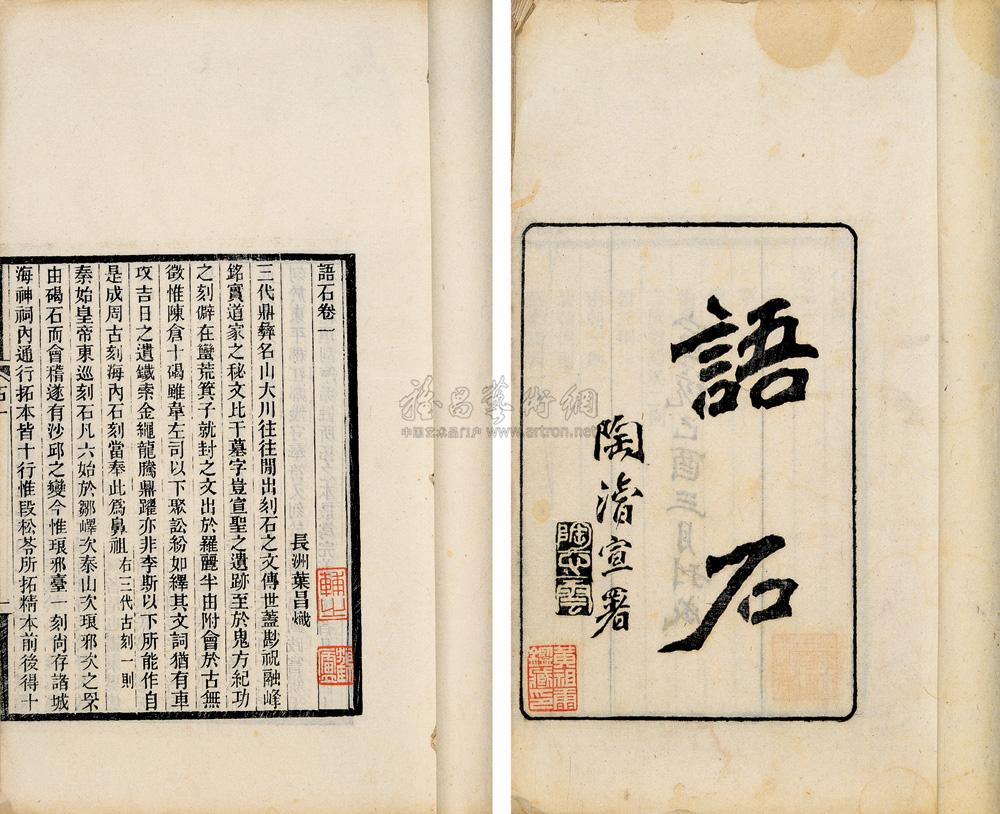 語石
陶濬宣署
陶心雲
黃祖
鑑藏
語石卷一
長洲葉昌熾
三代鼎彝名山大川往往閒出刻石之文傳世蓋尠祝融峰
銘實道家之秘文比干墓字豈宣聖之遺跡至於鬼方紀功
之刻僻在蠻荒箕子就封之文出於羅麗半由附會於古無
徵惟陳倉十碣雖韋左司以下聚訟紛如繹其文詞猶有車
攻吉日之遺鐵索金繩龍騰鼎躍亦非李斯以下所能作自
是成周古刻海內石刻當奉此爲鼻祖右三代古刻一則
秦始皇帝東巡刻石凡六始於鄒嶧次泰山次琅邪次之罘
由碣石而會稽遂有沙邱之變今惟琅邪臺一刻尚存諸城
海神祠內通行拓本皆十行惟段松苓所拓精本前後得十
雅昌藝術網
中国艺术品门户 www.artron.net